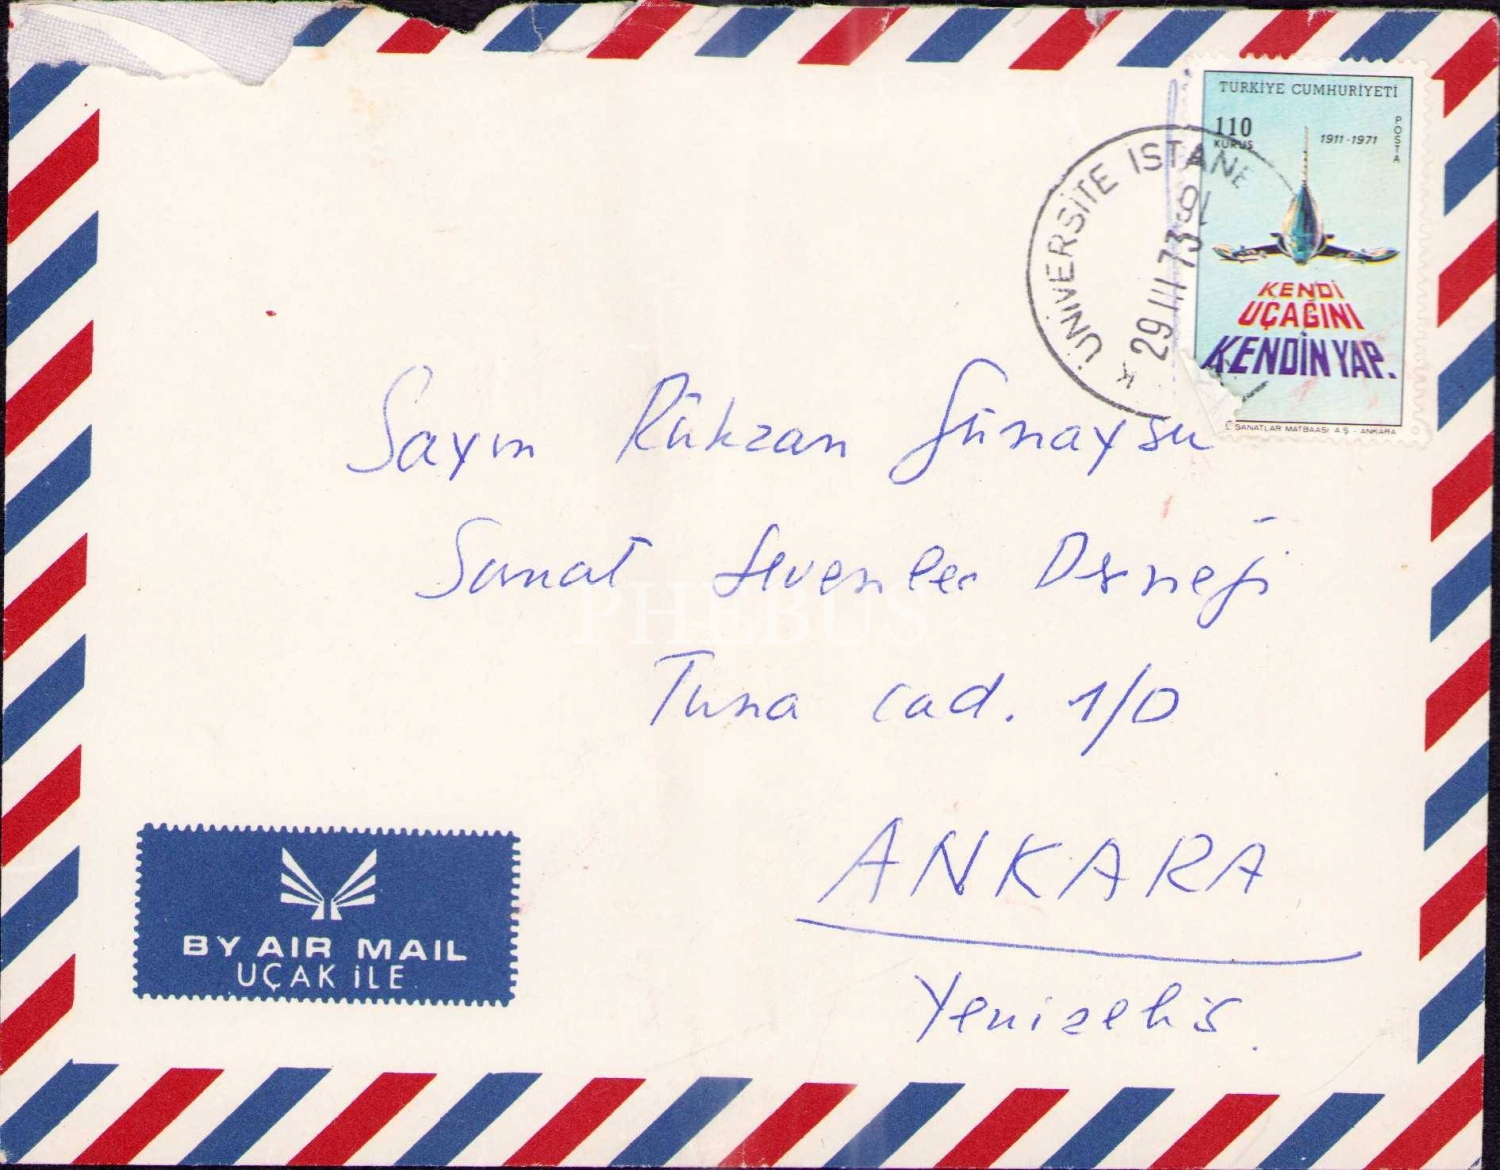 TÜRKİYE CUMHURİYETİ
110
KURUŞ
1911-1971
POSTA
KENDİ
UÇAĞINI
KENDİN YAP.
SANATLAR MATBAASI A.Ş - ANKARA
K ÜNİVERSİTE İSTANB
29 III 73
Sayın Rükzan Günaysu
Sanat Sevenler Derneği
Tuna cad. 1/D
ANKARA
Yenişehir
PHEBUS
BY AIR MAIL
UÇAK İLE